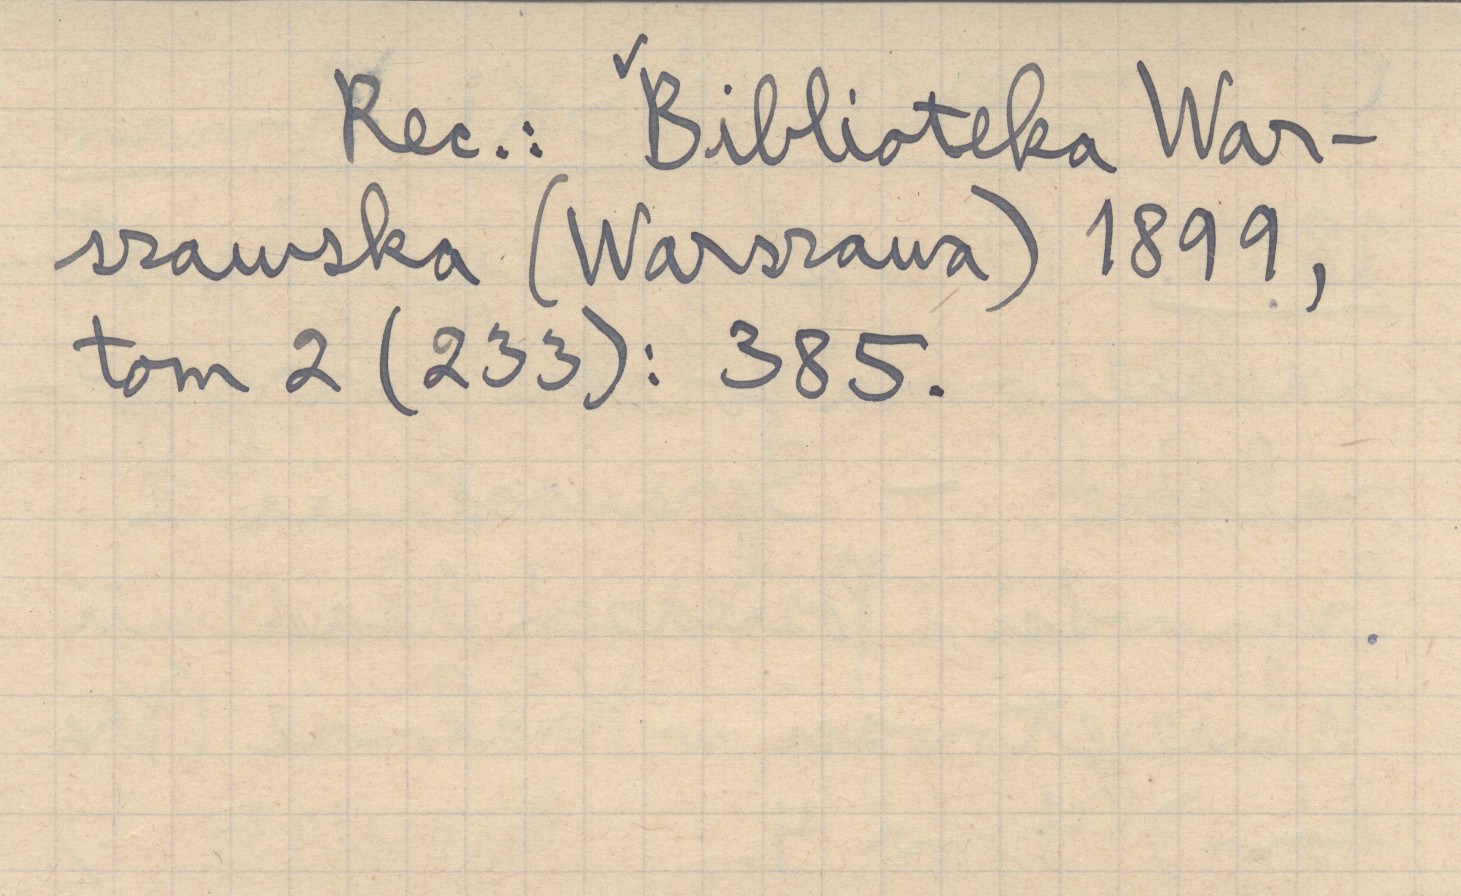 Rec.: ✓Biblioteka War-
szawska (Warszawa) 1899,
tom 2 (233): 385.